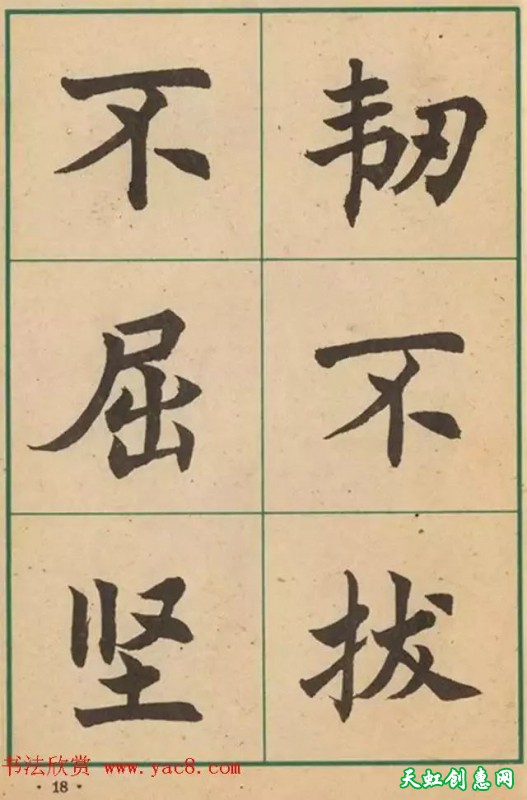 韧不拔
不屈坚
书法欣赏 www.yac8.com
·18·
天虹创惠网